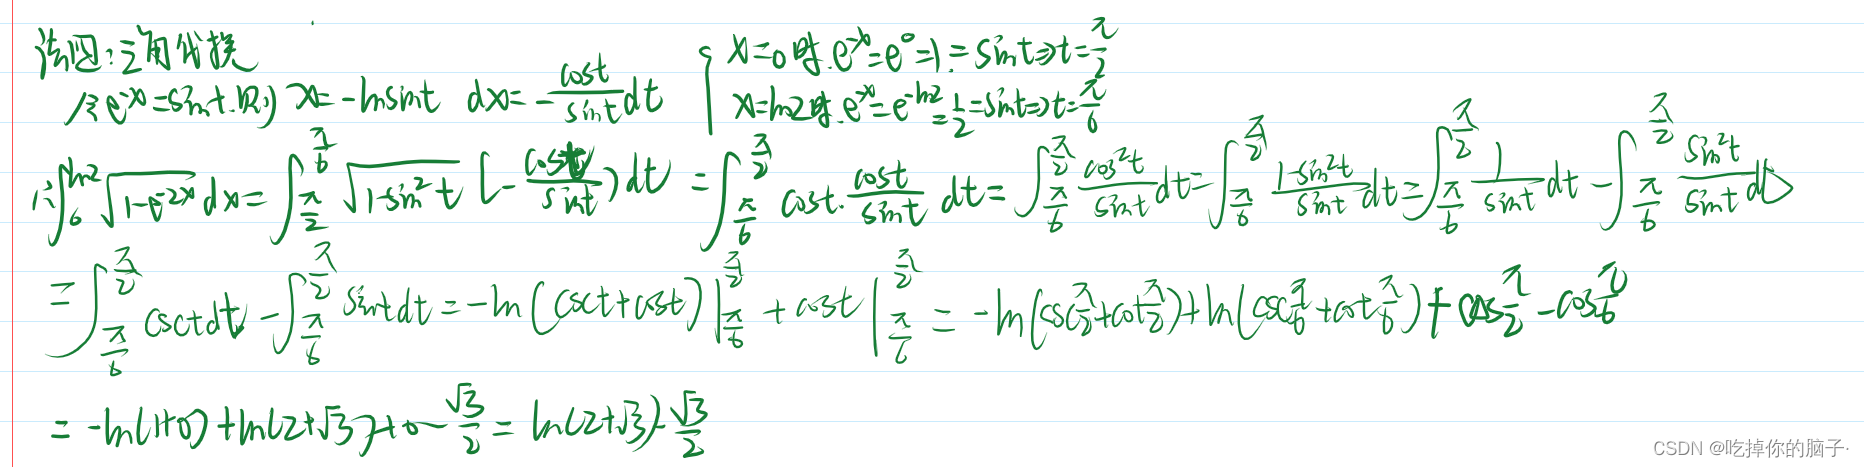 法四:三角代换
令e^{-x}=sint.则 x=-lnsint dx=-\frac{cost}{sint}dt { x=0时.e^{-x}=e^0=1=sint⇒t=\frac{π}{2}
x=ln2时.e^{-x}=e^{-ln2}=\frac{1}{2}=sint⇒t=\frac{π}{6}
∴∫_0^{ln2}\sqrt{1-e^{-2x}}dx=∫_{\frac{π}{2}}^{\frac{π}{6}}\sqrt{1-sin^2t}(-\frac{cost}{sint})dt=∫_{\frac{π}{6}}^{\frac{π}{2}}cost·\frac{cost}{sint}dt=∫_{\frac{π}{6}}^{\frac{π}{2}}\frac{cos^2t}{sint}dt=∫_{\frac{π}{6}}^{\frac{π}{2}}\frac{1-sin^2t}{sint}dt=∫_{\frac{π}{6}}^{\frac{π}{2}}\frac{1}{sint}dt-∫_{\frac{π}{6}}^{\frac{π}{2}}\frac{sin^2t}{sint}dt
=∫_{\frac{π}{6}}^{\frac{π}{2}}csctdt-∫_{\frac{π}{6}}^{\frac{π}{2}}sintdt=-ln(csct+cott)|_{\frac{π}{6}}^{\frac{π}{2}}+cost|_{\frac{π}{6}}^{\frac{π}{2}}=-ln(csc\frac{π}{2}+cot\frac{π}{2})+ln(csc\frac{π}{6}+cot\frac{π}{6})+cos\frac{π}{2}-cos\frac{π}{6}
=-ln(1+0)+ln(2+\sqrt{3})+0-\frac{\sqrt{3}}{2}=ln(2+\sqrt{3})-\frac{\sqrt{3}}{2}
CSDN @吃掉你的脑子·